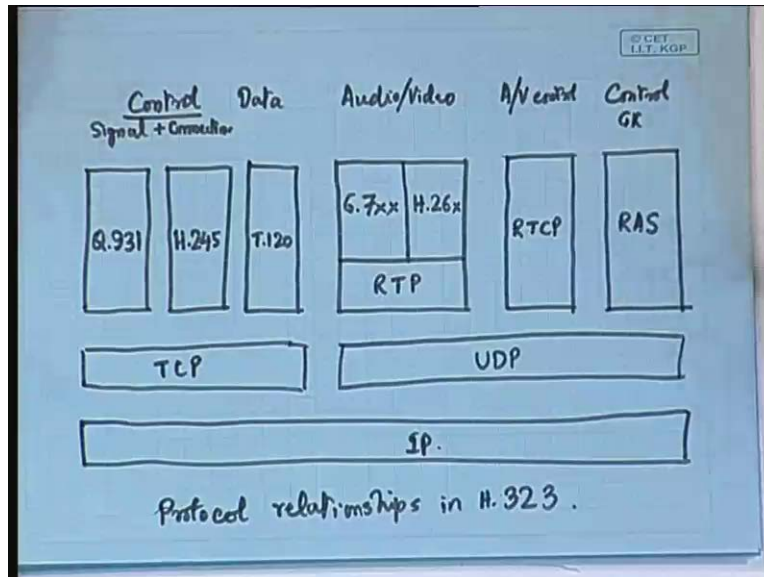 © CET
I.I.T. KGP
Control Data Audio/Video A/V control Control
Signal + Connection GK
Q.931 H.245 T.120 G.7xx H.26x RTCP RAS
RTP
TCP UDP
IP.
Protocol relationships in H.323.